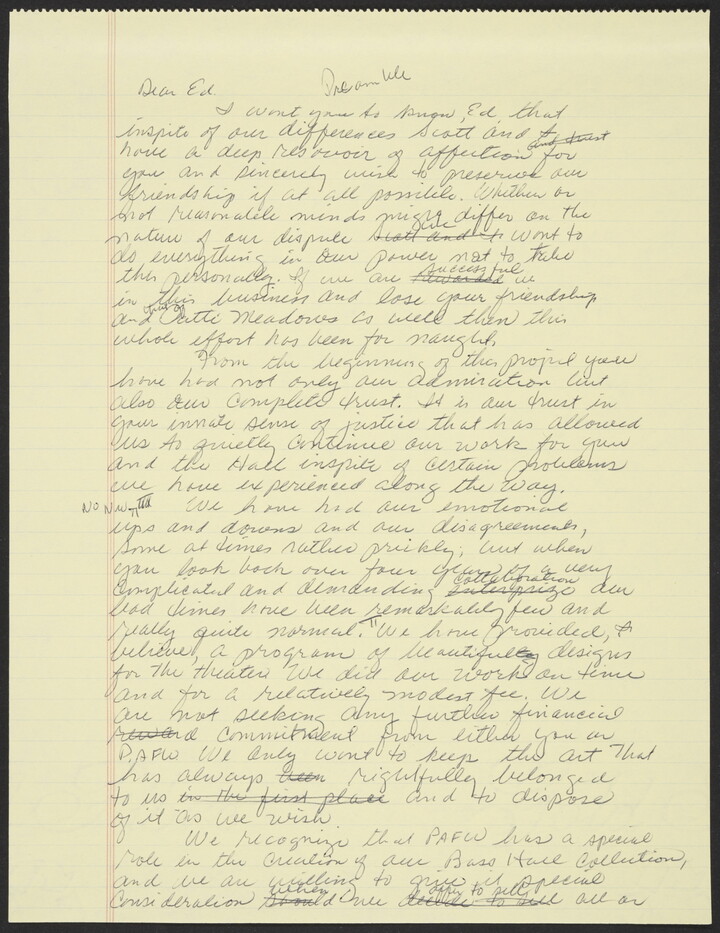 Preamble
Dear Ed.
I want you to know, Ed, that
inspite of our differences Scott and I
and trust
have a deep resovoir of affection for
you and sincerely wish to preserve our
friendship if at all possible. Whether or
not reasonable minds might differ on the
nature of our dispute Scott and I we want to
do everything in our power not to take
this personally. If we are rewarded successful
in this business and lose your friendship
and that of Patti Meadows as well then this
whole effort has been for naught.
From the beginning of this project you
have had not only our admiration but
also our complete trust. It is our trust in
your innate sense of justice that has allowed
us to quietly continue our work for you
and the Hall inspite of certain problems
we have experienced along the way.
No New ¶ We have had our emotional
ups and downs and our disagreements,
some at times rather prickly, but when
you look back over four years of a very
complicated and demanding enterprize collaboration our
bad times have been remarkably few and
really quite normal. ¶ We have provided, I
believe, a program of beautiful designs
for the theater We did our work on time
and for a relatively modest fee. We
are not seeking any further financial
reward commitment from either you or
PAFW We only want to keep the art that
has always been rightfully belonged
to us in the first place and to dispose
of it as we wish
We recognize that PAFW has a special
role in the creation of our Bass Hall Collection,
and we are willing to give it special
consideration should when we decide to sell offer to sell all or